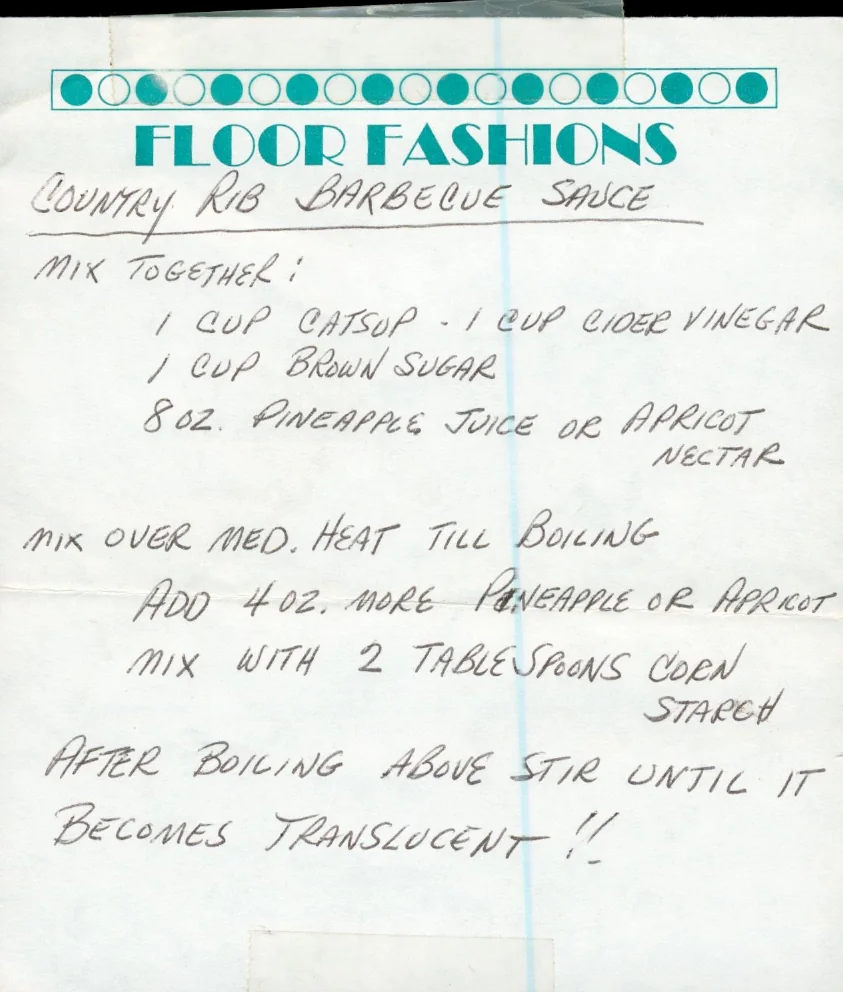 FLOOR FASHIONS
COUNTRY RIB BARBECUE SAUCE
MIX TOGETHER:
1 CUP CATSUP - 1 CUP CIDER VINEGAR
1 CUP BROWN SUGAR
8 OZ. PINEAPPLE JUICE OR APRICOT
NECTAR
MIX OVER MED. HEAT TILL BOILING
ADD 4 OZ. MORE PINEAPPLE OR APRICOT
MIX WITH 2 TABLESPOONS CORN
STARCH
AFTER BOILING ABOVE STIR UNTIL IT
BECOMES TRANSLUCENT!!